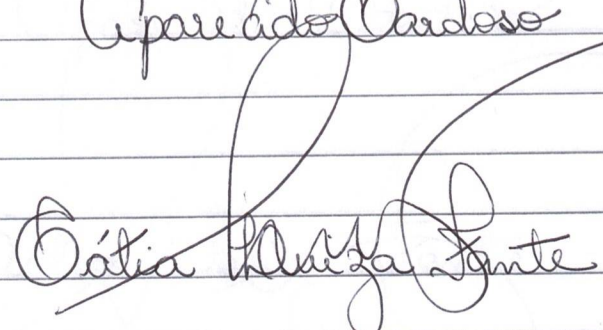 Aparecido Cardoso
Cátia Luiza Fante